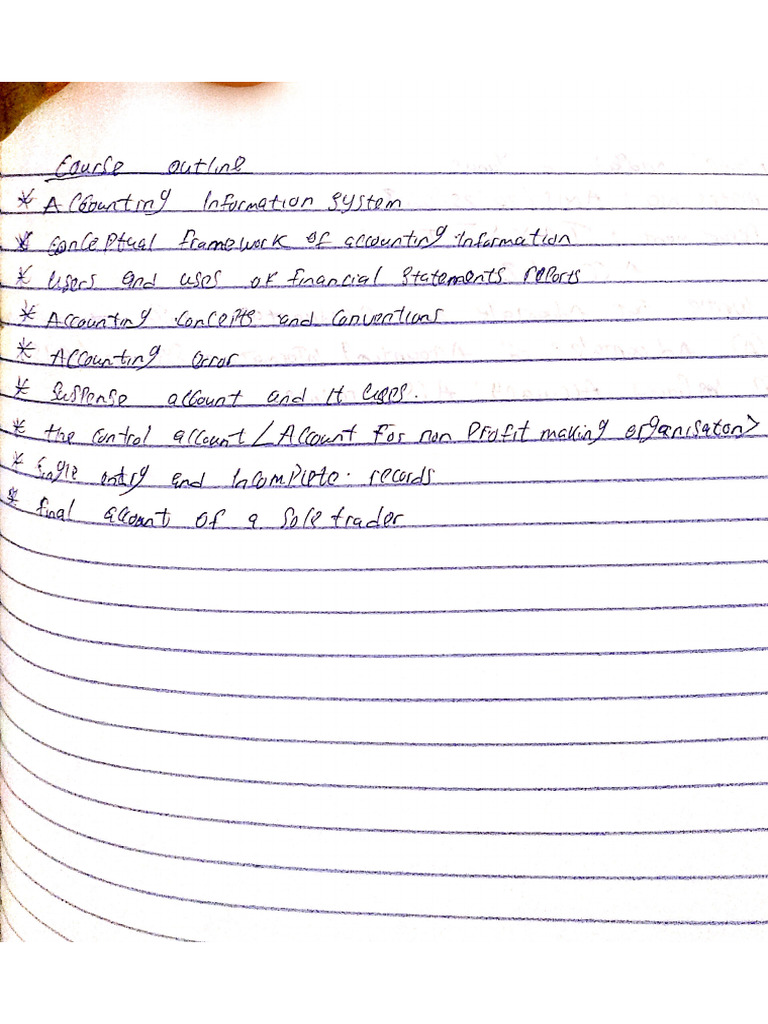 Course outline
* Accounting Information system
* conceptual framework of accounting information
* users and uses of financial statements reports
* Accounting concepts and conventions
* Accounting error
* suspense account and it uses.
* the control account / Account for non profit making organisaton>
* Single entry and incomplete. records
* final account of a sole trader